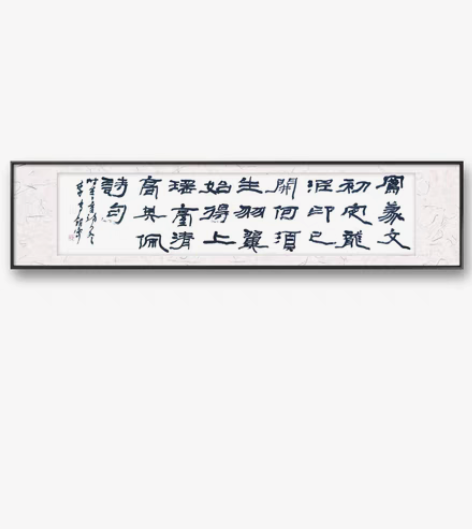 鳳篆文
初定龍
泥印已
開何須
生羽翼
始得上
瑤臺清
高其佩
詩句